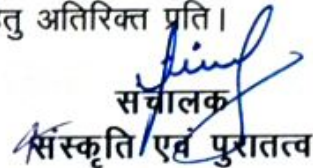 हेतु अतिरिक्त प्रति।
संचालक
संस्कृति एवं पुरातत्व